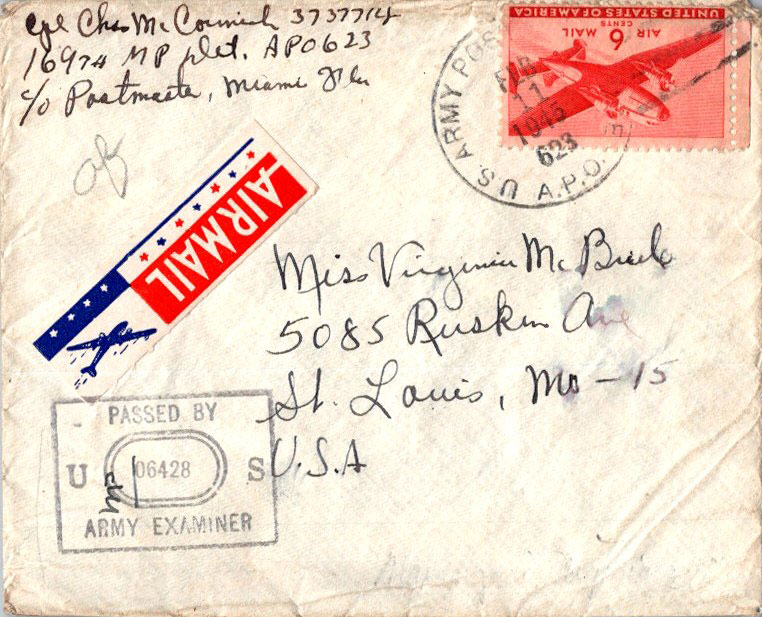 Cpl Chas Mc Cormick 37377714
1697th MP plet. APO 623
c/o Postmaster, Miami Fla
UNITED STATES OF AMERICA
AIR 6 MAIL
CENTS
U.S. ARMY POS
A.P.O.
FEB
11
1945
623
AIR MAIL
Miss Virginia Mc Bride
5085 Ruskin Ave
St. Louis, Mo - 15
U.S.A
PASSED BY
U 06428 S
ARMY EXAMINER